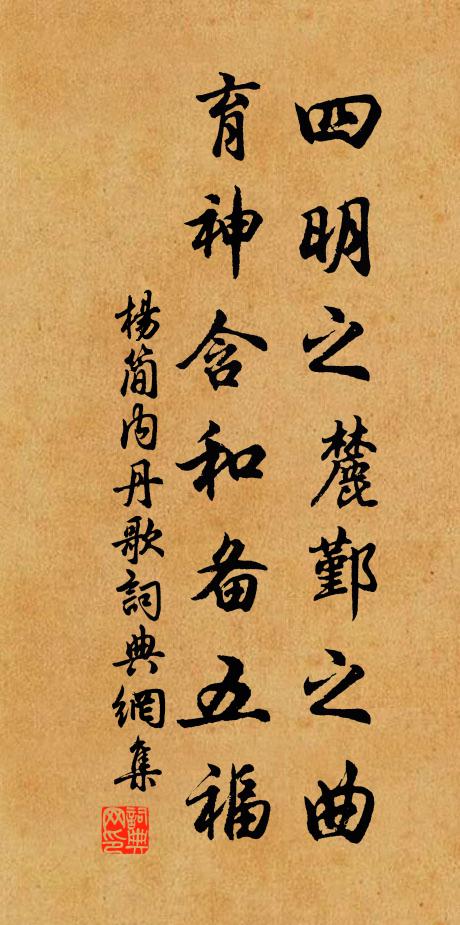 四明之麓鄞之曲
育神含和备五福
楊简内丹歌詞典網集
詞典网印